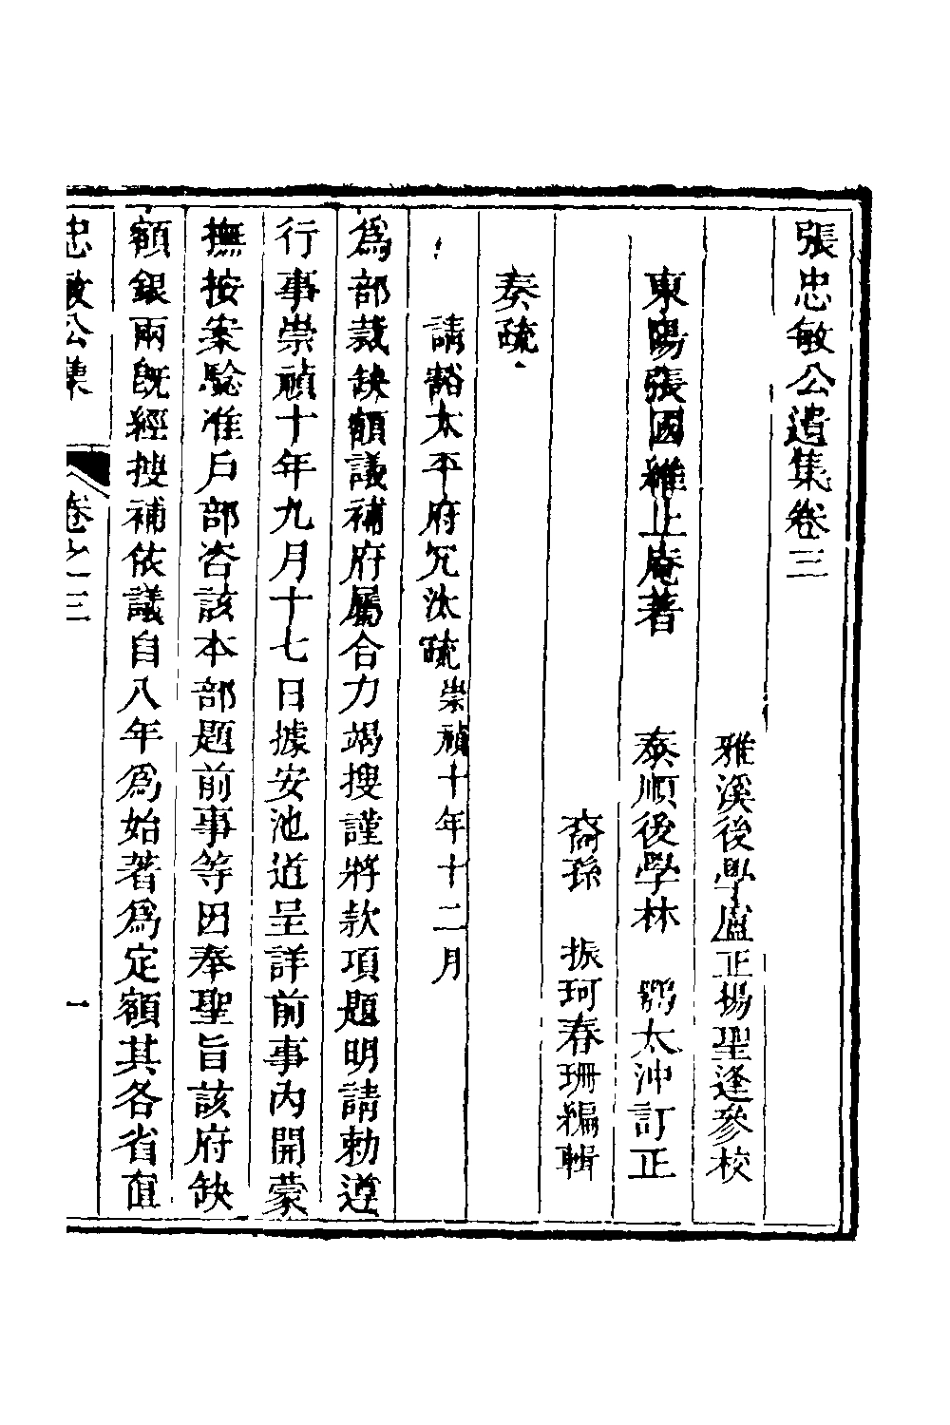 張忠敏公遺集卷三
雅溪後學盧正楊聖逢參校
東陽張國維止庵著　泰順後學林　鶚太沖訂正
裔孫　振珂春珊編輯
奏疏
請豁太平府冗汰疏崇禎十年十二月
爲部裁缺額議補府屬合力竭搜謹將款項題明請勅遵
行事崇禎十年九月十七日據安池道呈詳前事內開蒙
撫按案驗准戶部咨該本部題前事等因奉聖旨該府缺
額銀兩既經搜補依議自八年爲始著爲定額其各省直
忠敏公集　卷之三　一